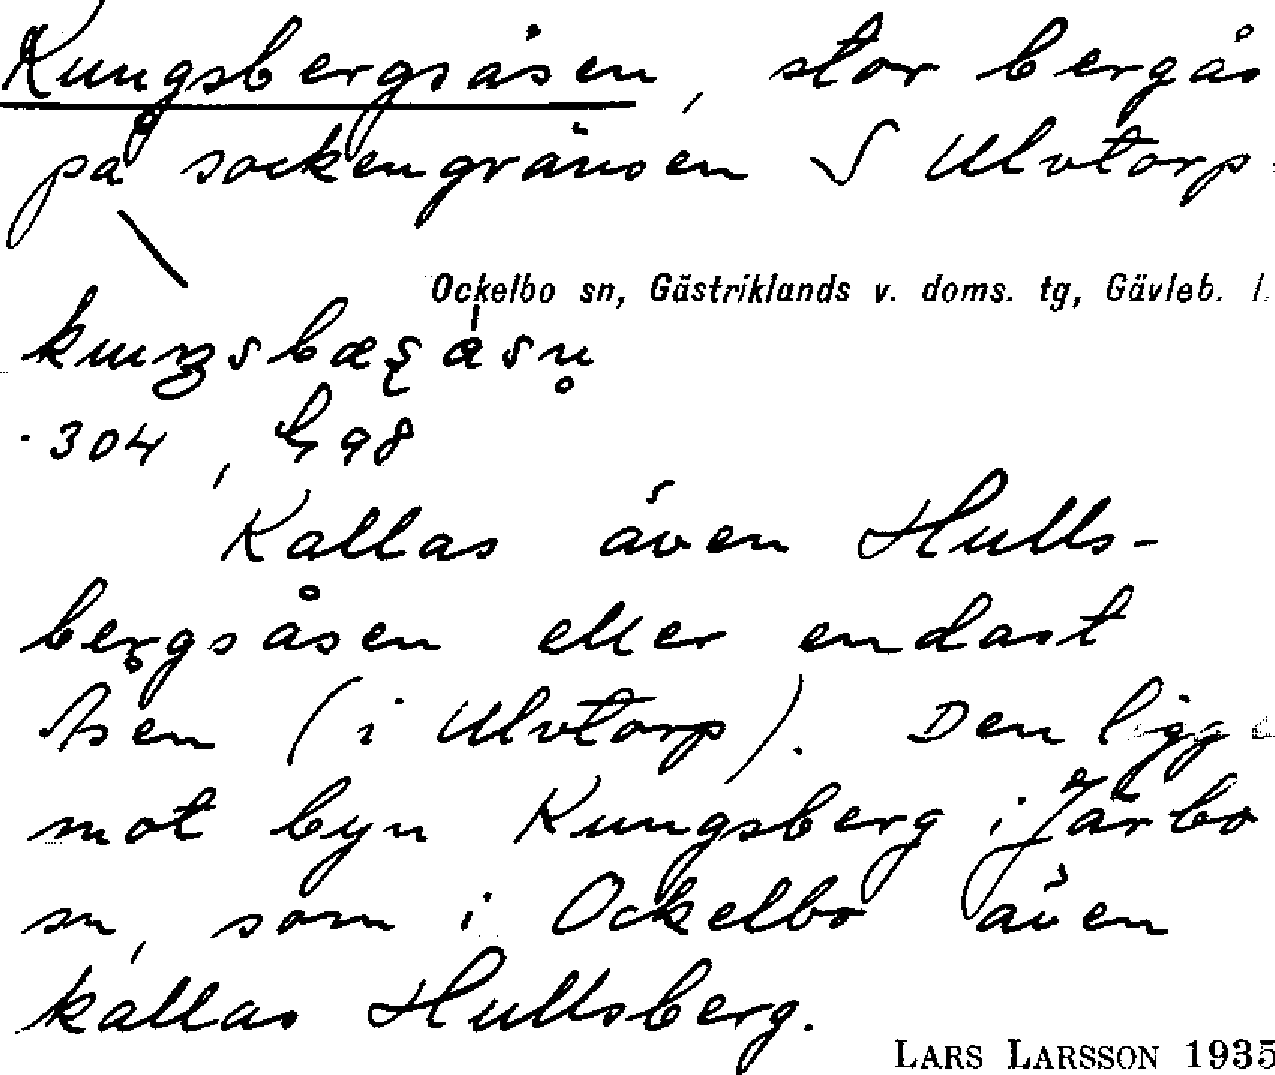 Kungsbergsåsen, stor bergås
på sockengränsen S Ulvtorp.
Ockelbo sn, Gästriklands v. doms. tg, Gävleb. l.
304, 98
Kallas även Hulls-
bergsåsen eller endast
Åsen (i Ulvtorp). Den ligge
mot byn Kungsberg i Järbo
sn, som i Ockelbo även
kallas Hullsberg.
LARS LARSSON 1935